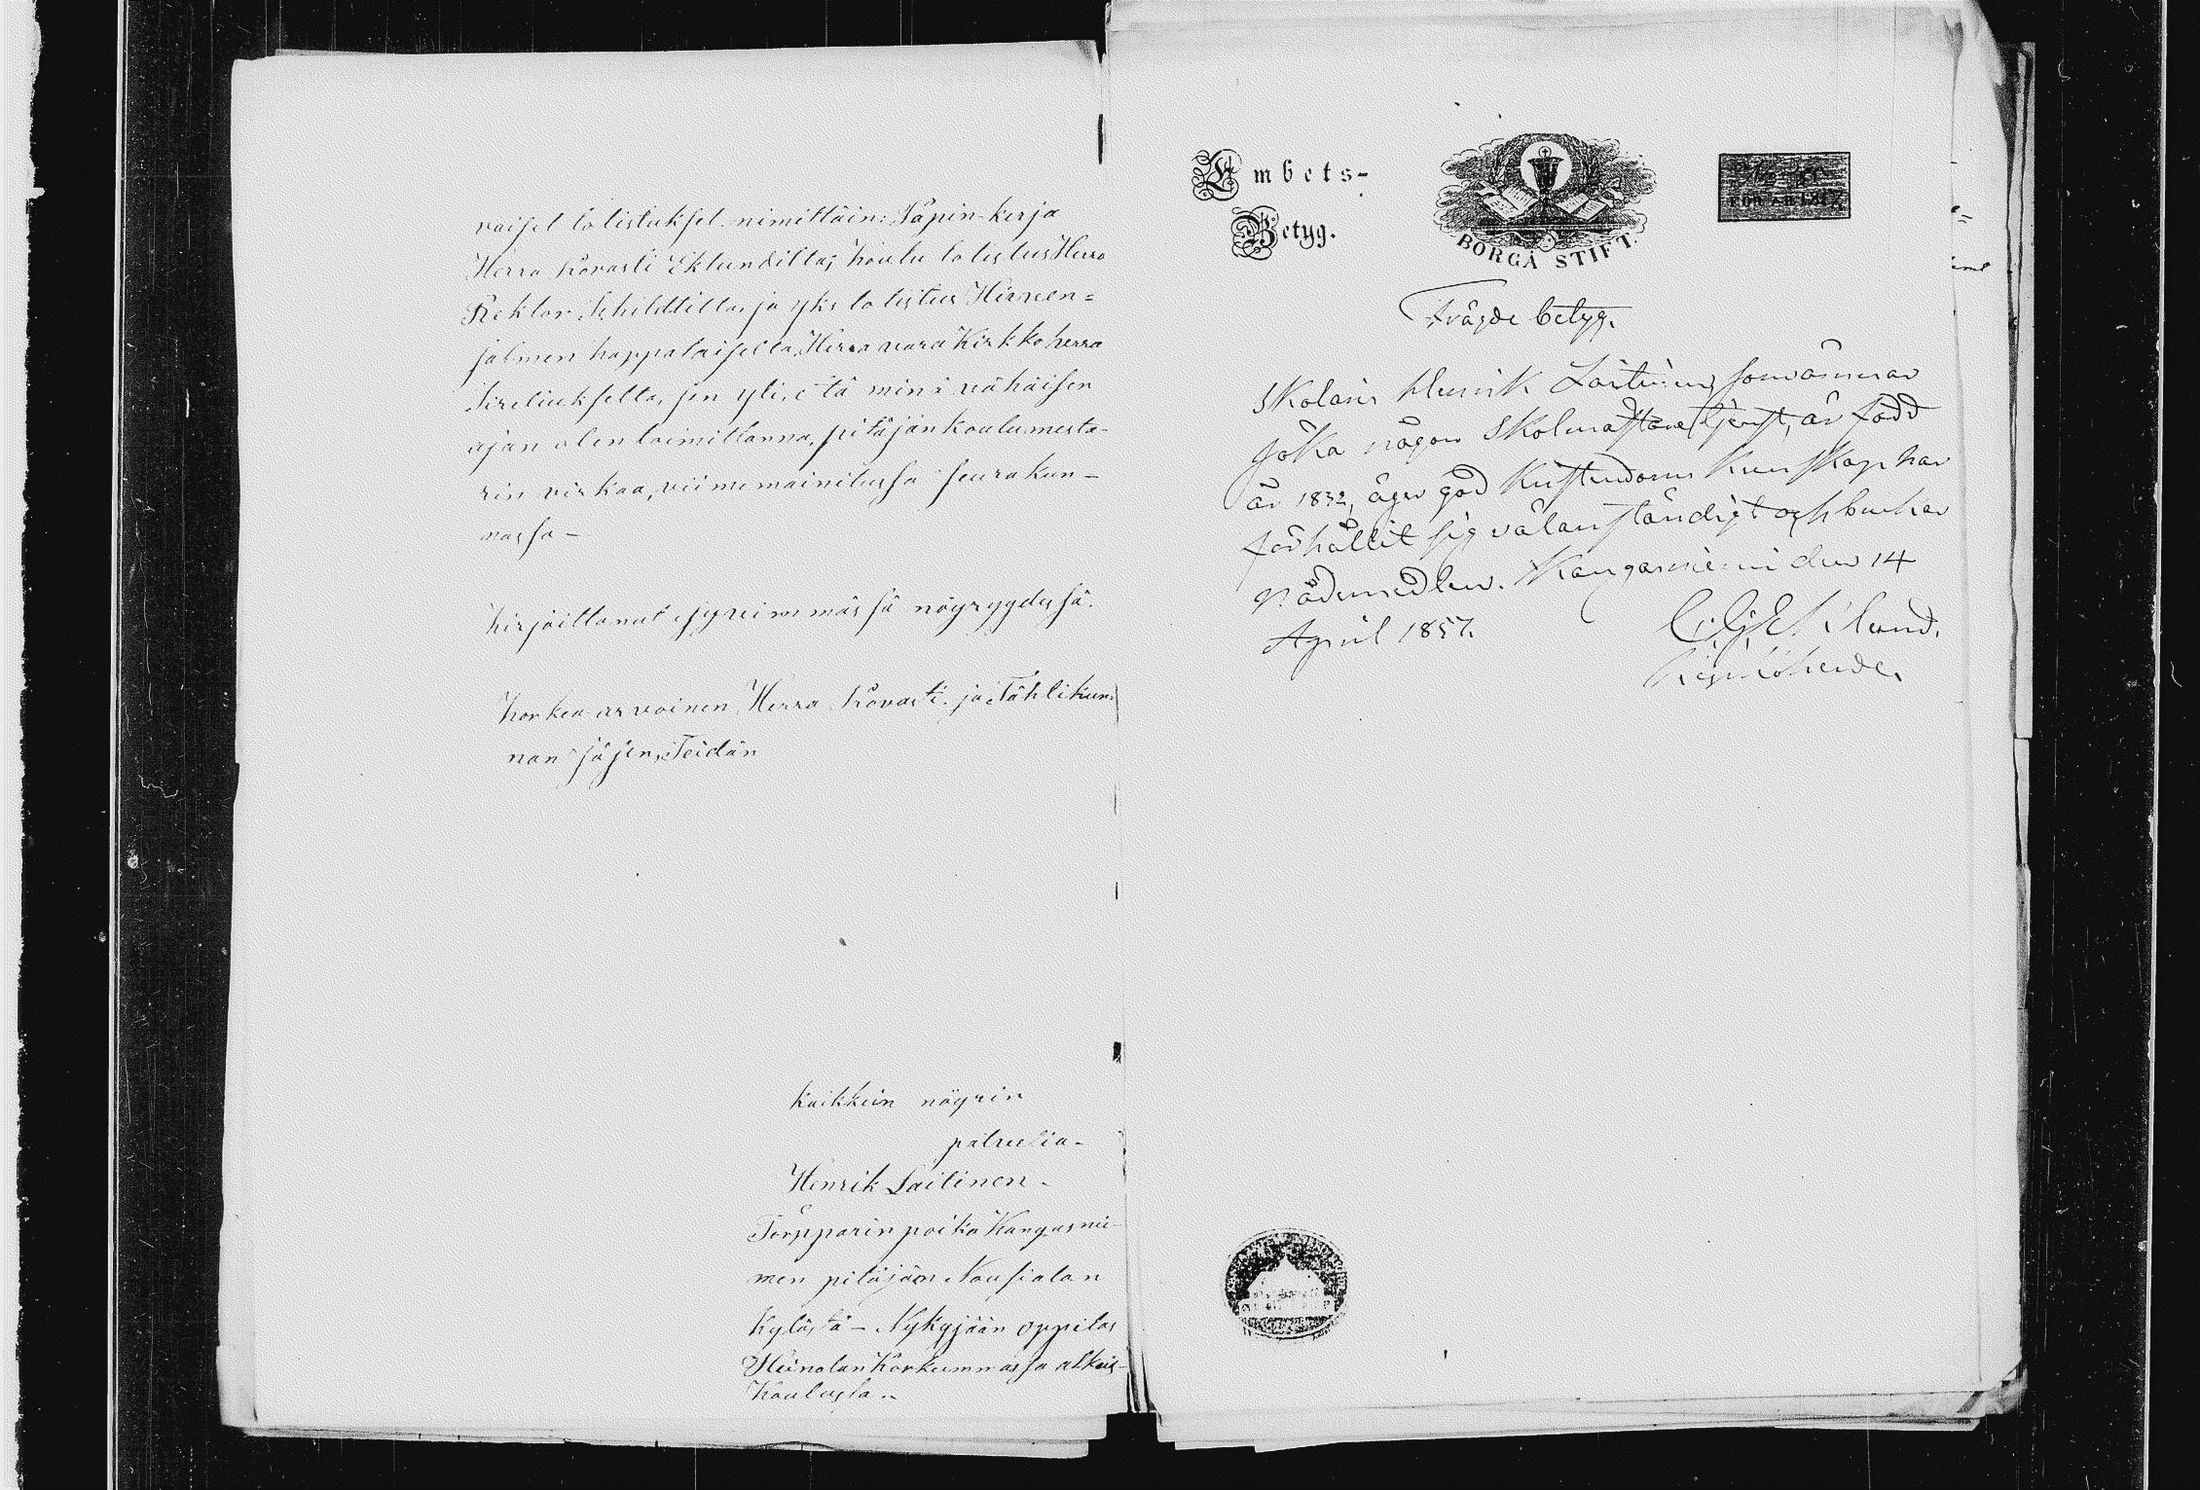 vaiset totistukset. nimittäin: Päpin-kirja
Herra Rovasti Eklundilta; koulu totistus Herra
Rektor Schildtilta, ja yks totistus Hirven=
salmen kappalaiselta, Herra vara Kirkkoherra
Sireliukselta, sen yli, että minä vähäisen
ajan olen toimittanna, pitäjän koulumesta-
rin virkaa, viimemainitussa seurakun-
nassa -
Kirjoittanut syvimmässä nöyryydessä.
Korkea arvoinen Herra Rovasti. ja Tähtikun-
nan jäsen, Teidän
kaikkein nöyrin
palvelia-
Henrik Laitinen-
Torpparin poika Kangasnie-
men pitäjän Nousialan
Kylästä - Nykyjään oppilas
Heinolan Korkeimmassa alkeis-
Koulussa..
Embets-
Betyg.
BORGÅ STIFT.
Frägde betyg.
Skolaris Henrik Laitinen, som ämnar
söka någon Skolmästare tjenst, är född
år 1832, äger god Kristendoms Kunskap har
förhållit sig välanständigt och brukar
nådemedlen. Kangasniemi den 14
April 1857.
C. G. Eklund.
Kyrkoherde.